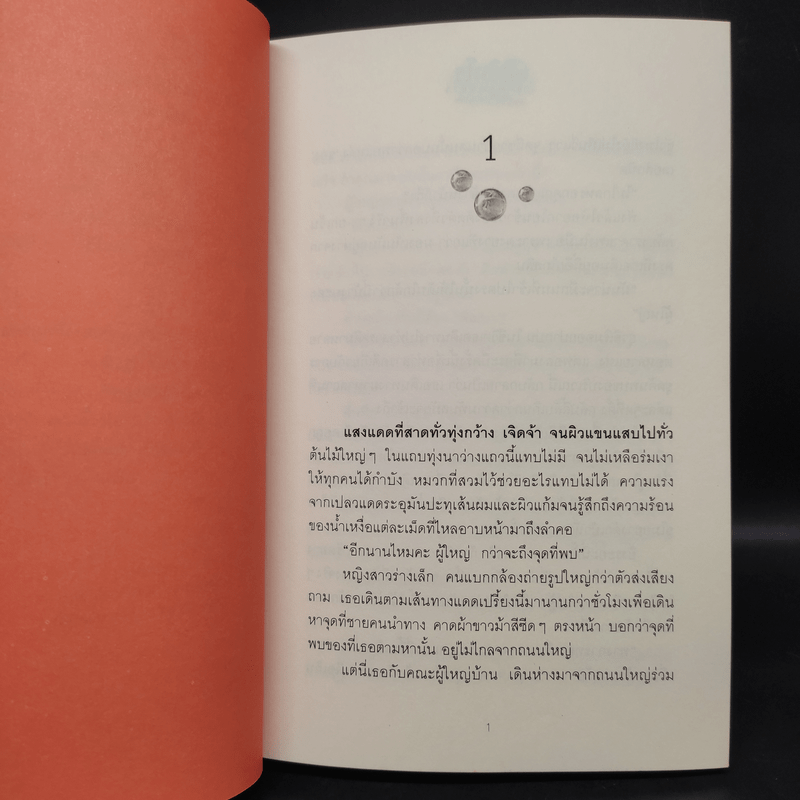 1
แสงแดดที่สาดทั่วทุ่งกว้าง เจิดจ้า จนผิวแขนแสบไปทั่ว
ต้นไม้ใหญ่ๆ ในแถบทุ่งนาว่างแถวนี้แทบไม่มี จนไม่เหลือร่มเงา
ให้ทุกคนได้กำบัง หมวกที่สวมไว้ช่วยอะไรแทบไม่ได้ ความแรง
จากเปลวแดดระอุมันปะทุเส้นผมและผิวแก้มจนรู้สึกถึงความร้อน
ของน้ำเหงื่อแต่ละเม็ดที่ไหลอาบหน้ามาถึงลำคอ
“อีกนานไหมคะ ผู้ใหญ่ กว่าจะถึงจุดที่พบ”
หญิงสาวร่างเล็ก คนแบกกล้องถ่ายรูปใหญ่กว่าตัวส่งเสียง
ถาม เธอเดินตามเส้นทางแดดเปรี้ยงนี้มานานกว่าชั่วโมงเพื่อเดิน
หาจุดที่ชายคนนำทาง คาดผ้าขาวม้าสีซีดๆ ตรงหน้า บอกว่าจุดที่
พบของที่เธอตามหานั้น อยู่ไม่ไกลจากถนนใหญ่
แต่นี่เธอกับคณะผู้ใหญ่บ้าน เดินห่างมาจากถนนใหญ่ร่วม
1